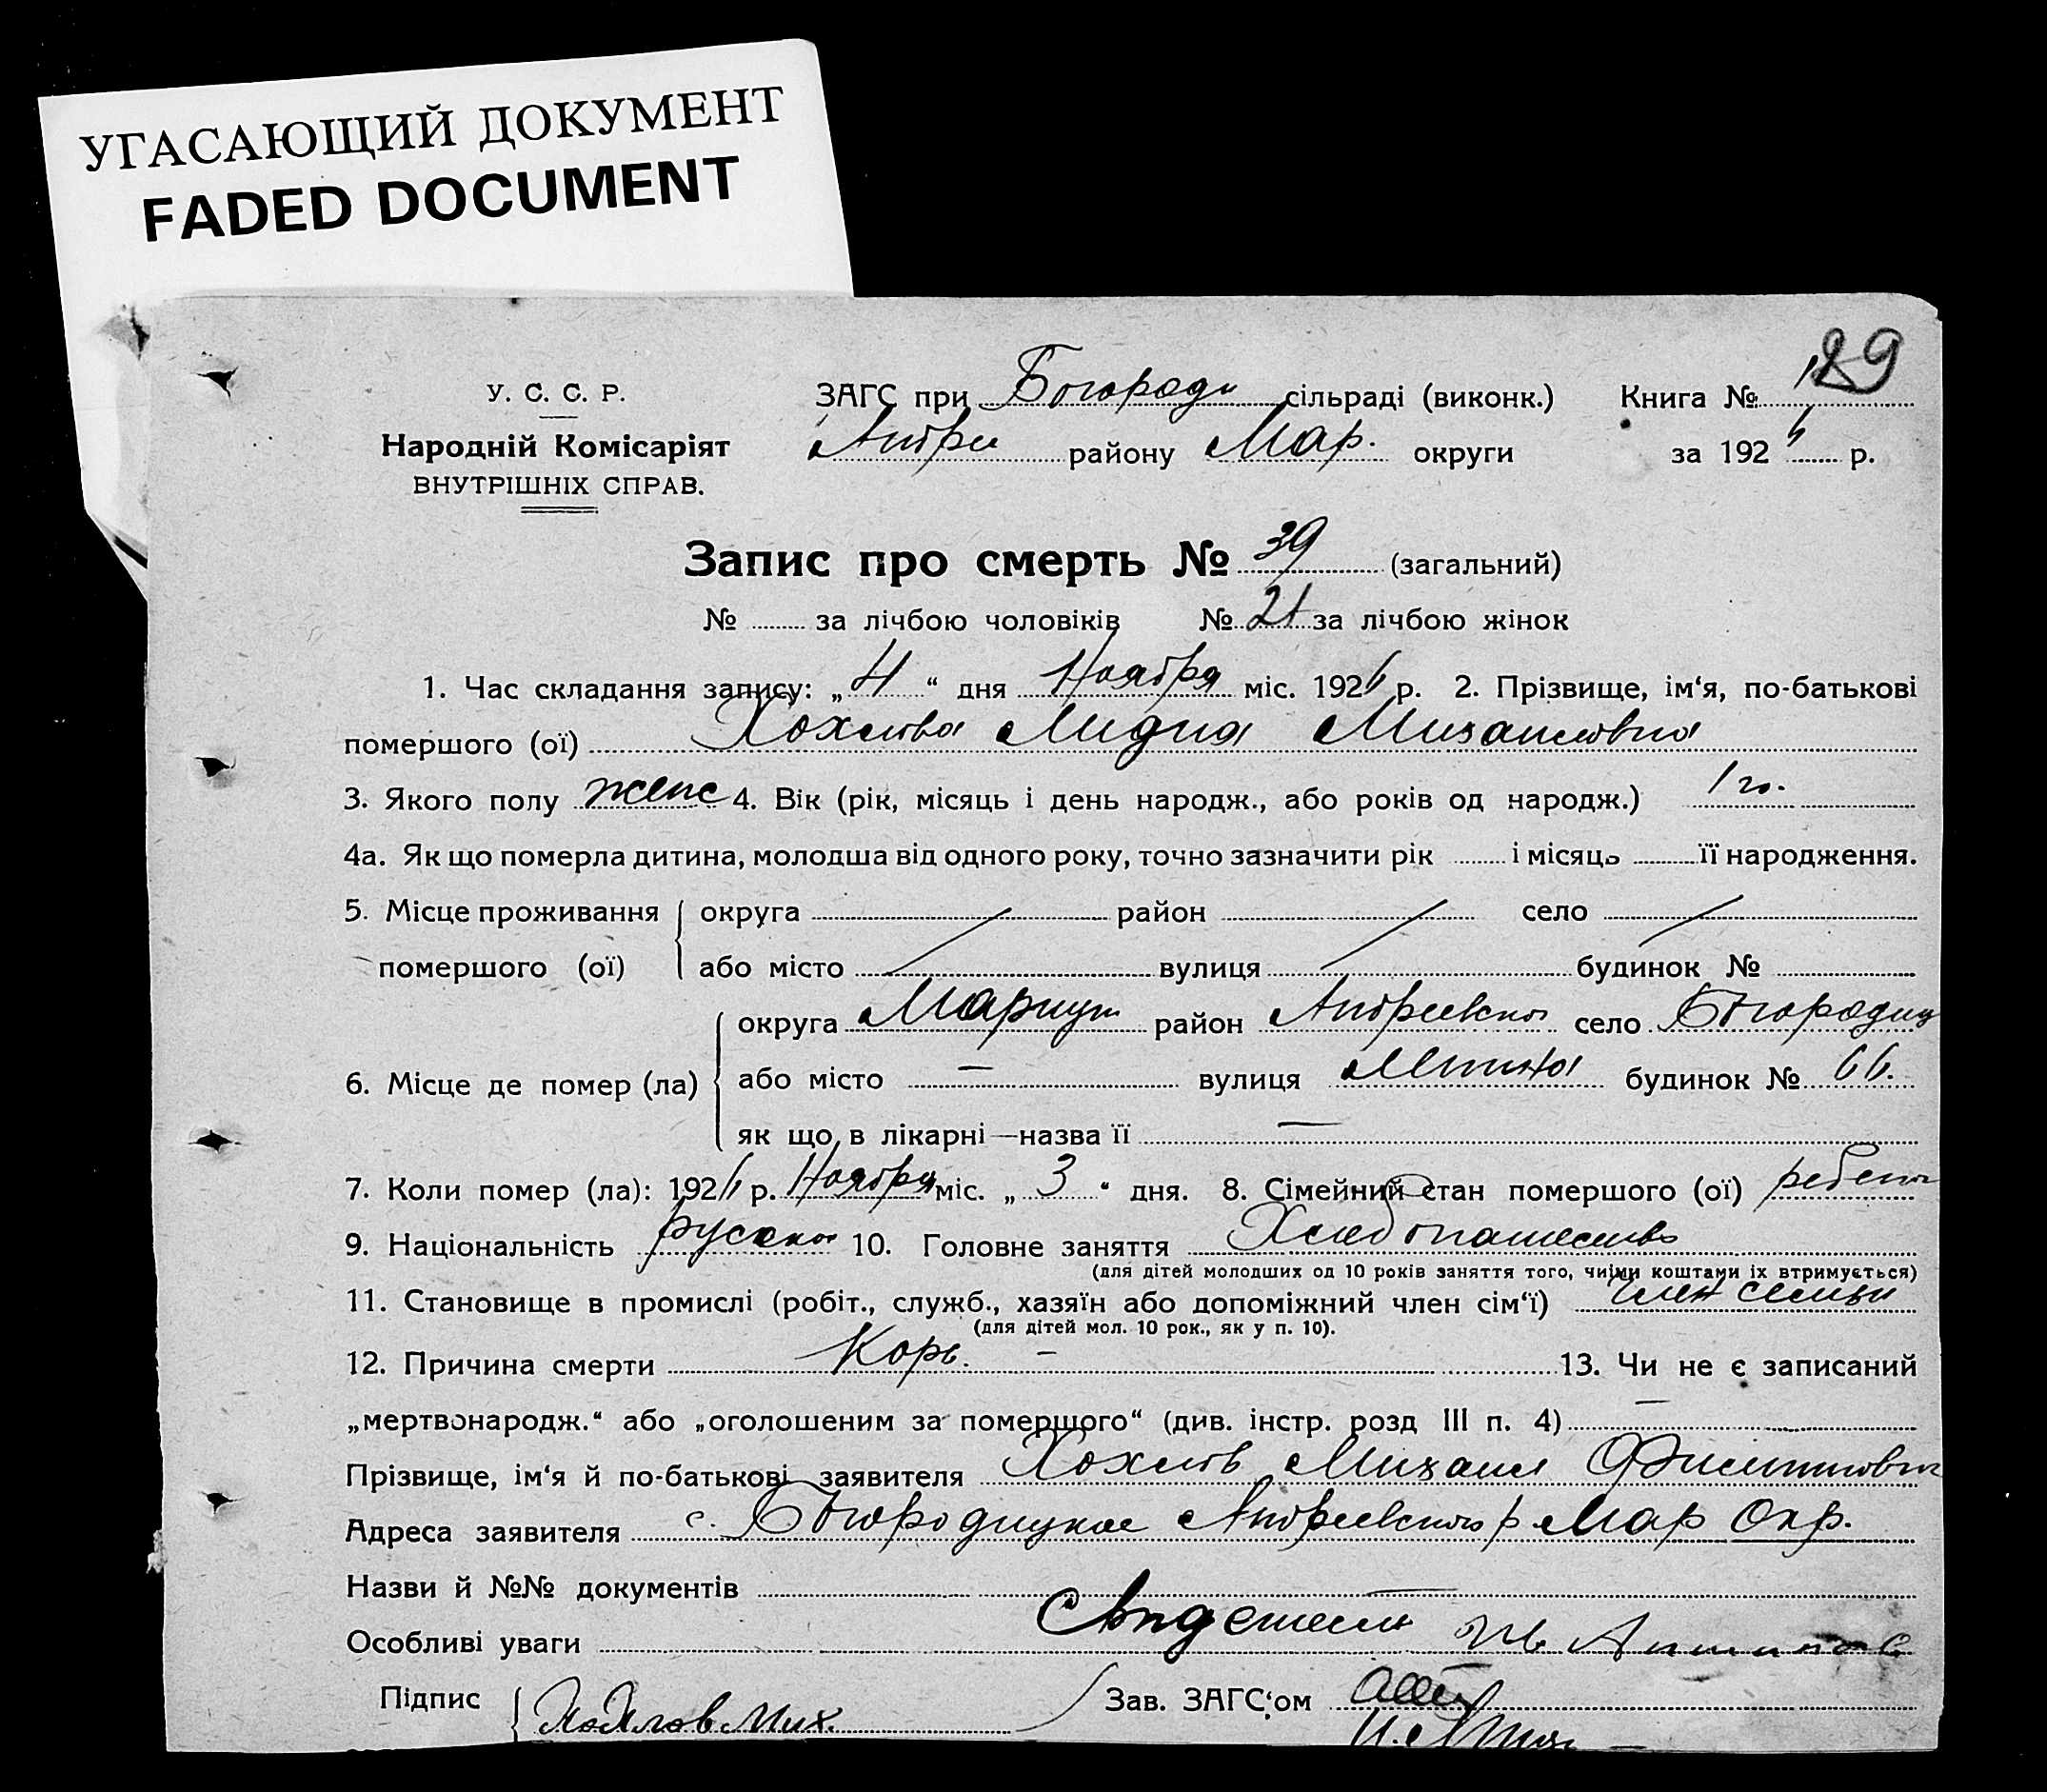 УГАСАЮЩИЙ ДОКУМЕНТ
FADED DOCUMENT
У. С. С. Р.
Народній Комісаріят
ВНУТРІШНІХ СПРАВ.
ЗАГС при Богороди сільраді (виконк.) Книга №
129
Андре району Мар. округи за 192 р.
Запис про смерть № 39 (загальний)
№ за лічбою чоловіків № 21 за лічбою жінок
1. Час складання запису: „4“ дня Ноября міс. 192 р. 2. Прізвище, ім‘я, по-батькові
помершого (ої) Хохлова Лидия Михаиловна
3. Якого полу женс 4. Вік (рік, місяць і день народж., або років од народж.) 1 го.
4а. Як що померла дитина, молодша від одного року, точно зазначити рік і місяць її народження.
5. Місце проживання округа район село
помершого (ої) або місто вулиця будинок №
округа Мариуп район Андреевског село Богородиц
6. Місце де помер (ла) або місто — вулиця будинок № 66.
як що в лікарні—назва її —
7. Коли помер (ла): 192 р. Ноября міс. „3“ дня. 8. Сімейний стан помершого (ої) ребено
9. Національність руская 10. Головне заняття Хлебопашество
(для дітей молодших од 10 років заняття того, чиїми коштами їх втримується)
11. Становище в промислі (робіт., служб., хазяїн або допоміжний член сім‘ї) член семьи
(для дітей мол. 10 рок., як у п. 10).
12. Причина смерти Корь. — 13. Чи не є записаний
„мертвонародж.“ або „оголошеним за помершого“ (див. інстр. розд III п. 4) —
Прізвище, ім‘я й по-батькові заявителя Хохлов Михаил Филиппович
Адреса заявителя с. Богородицкое Андреевского р Мар Окр.
Назви й №№ документів —
Особливі уваги Свидетели Ив
Підпис Хохлов Мих. Зав. ЗАГС‘ом